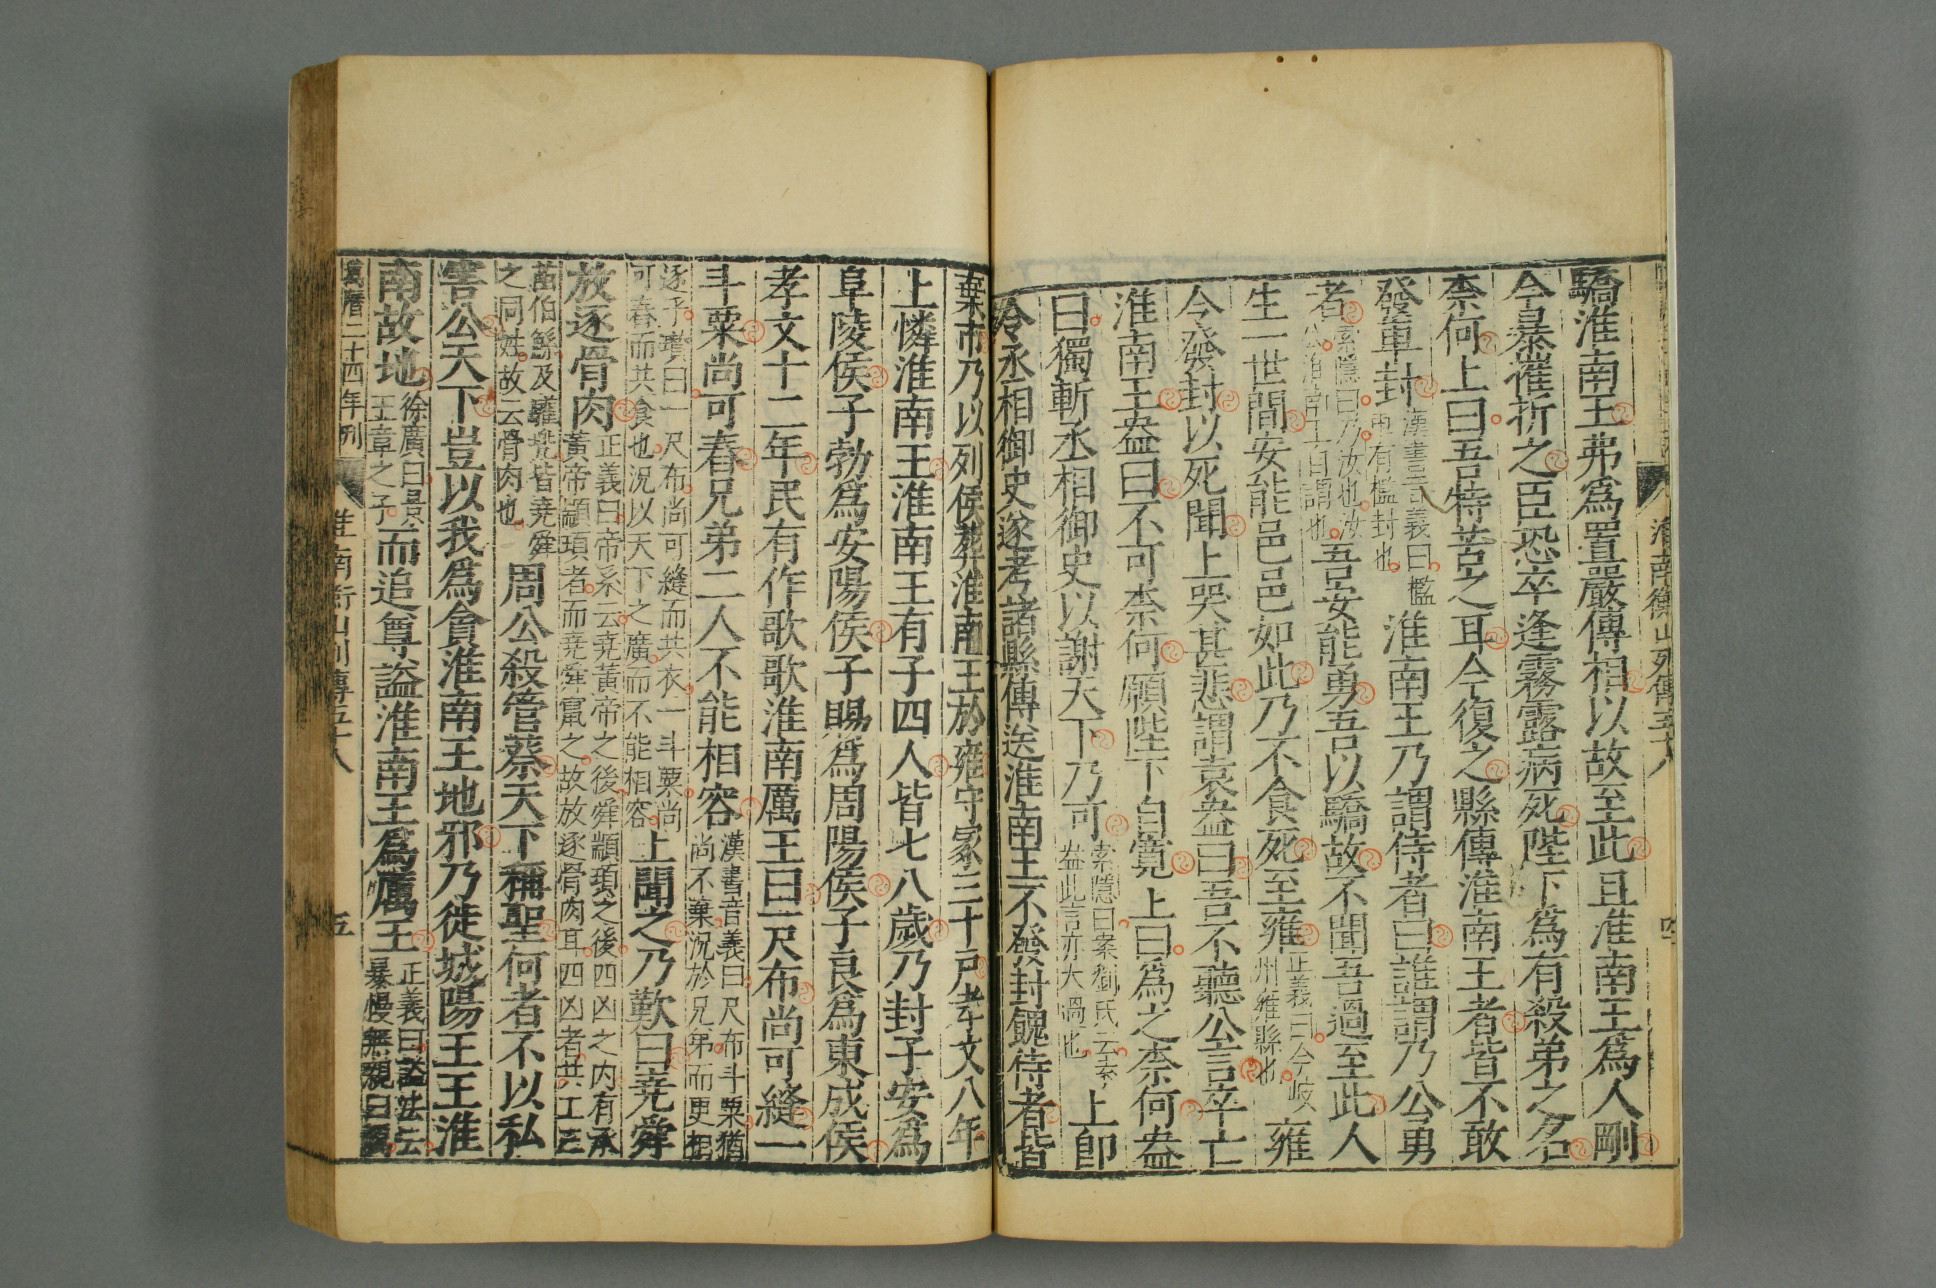 淮南衡山列傳五十八
驕淮南王弗爲置嚴傅相以故至此且淮南王爲人剛
今暴摧折之臣恐卒逢霧露病死陛下爲有殺弟之名
柰何上曰吾特苦之耳今復之縣傳淮南王者皆不敢
發車封
漢書音義曰檻
車有檻封也
淮南王乃謂侍者曰誰謂乃公勇
者
索隱曰乃汝也汝
公淮南王自謂也
吾安能勇吾以驕故不聞吾過至此人
生一世間安能邑邑如此乃不食死至雍
正義曰今岐
州雍縣也
雍
令發封以死聞上哭甚悲謂袁盎曰吾不聽公言卒亡
淮南王盎曰不可柰何願陛下自寬上曰爲之柰何盎
曰獨斬丞相御史以謝天下乃可
索隱曰案劉氏云袁
盎此言亦大過也
上即
令丞相御史遂考諸縣傳送淮南王不發封餽侍者皆
棄市乃以列侯葬淮南王於雍守冢三十戶孝文八年
上憐淮南王淮南王有子四人皆七八歲乃封子安爲
阜陵侯子勃爲安陽侯子賜爲周陽侯子良爲東成侯
孝文十二年民有作歌歌淮南厲王曰一尺布尚可縫一
斗粟尚可舂兄弟二人不能相容
漢書音義曰尺布斗粟猶
尚不棄況於兄弟而更相
逐乎瓚曰一尺布尚可縫而共衣一斗粟尚
可舂而共食也況以天下之廣而不能相容
上聞之乃歎曰堯舜
放逐骨肉
正義曰帝系云堯黃帝之後舜顓頊之後四凶之内有承
黃帝顓頊者而堯舜竄之故放逐骨肉耳四凶者共工三
苗伯鯀及驩兜皆堯舜
之同姓故云骨肉也
周公殺管蔡天下稱聖何者不以私
害公天下豈以我爲貪淮南王地邪乃徙城陽王王淮
南故地
徐廣曰景
王章之子
而追尊謚淮南王爲厲王
正義曰謚法云
暴慢無親曰厲
萬曆二十四年刊
淮南衡山列傳五十八
五